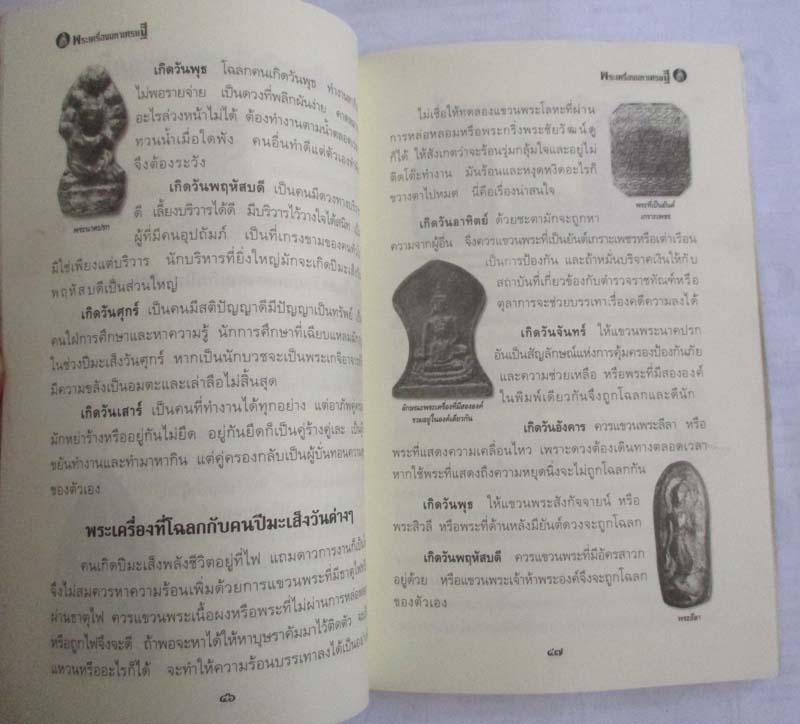 พระเครื่องมหาเศรษฐี
เกิดวันพุธ โฉลกคนเกิดวันพุธ ทำงาน
ไม่พอรายจ่าย เป็นดวงที่พลิกผันง่าย
อะไรล่วงหน้าไม่ได้ ต้องทำงานตามน้ำตลอด
ทวนน้ำเมื่อใดพัง คนอื่นทำดีแต่ตัวเอง
จึงต้องระวัง
เกิดวันพฤหัสบดี เป็นคนมีดวงทางบริ
ดี เลี้ยงบริวารได้ดี มีบริวารไว้วางใจได้สนิท
ผู้ที่มีคนอุปถัมภ์ เป็นที่เกรงขามของคน
พระนาคปรก
มิใช่เพียงแต่บริวาร นักบริหารที่ยิ่งใหญ่มักจะเกิดปีมะเส็ง
พฤหัสบดีเป็นส่วนใหญ่
เกิดวันศุกร์ เป็นคนมีสติปัญญาดีมีปัญญาเป็นทรัพย์
คนใฝ่การศึกษาและหาความรู้ นักการศึกษาที่เฉียบแหลมมัก
ในช่วงปีมะเส็งวันศุกร์ หากเป็นนักบวชจะเป็นพระเกจิอาจาร
มีความขลังเป็นอมตะและเล่าลือไม่สิ้นสุด
เกิดวันเสาร์ เป็นคนที่ทำงานได้ทุกอย่าง แต่อาภัพคู่คร
มักหย่าร้างหรืออยู่กันไม่ยืด อยู่กันยืดก็เป็นคู่ร้างคู่เละ
ขยันทำงานและทำมาหากิน แต่คู่ครองกลับเป็นผู้บั่นทอนความ
ของตัวเอง
พระเครื่องที่โฉลกกับคนปีมะเส็งวันต่างๆ
คนเกิดปีมะเส็งพลังชีวิตอยู่ที่ไฟ แถมดาวการงานก็เป็น
จึงไม่สมควรหาความร้อนเพิ่มด้วยการแขวนพระที่มีธาตุไฟ
ผ่านธาตุไฟ ควรแขวนพระเนื้อผงหรือพระที่ไม่ผ่านการหล่อ
หรือถูกไฟจึงจะดี ถ้าพอจะหาได้ให้หาบุษราคัมมาไว้ติดตัว
แหวนหรืออะไรก็ได้ จะทำให้ความร้อนบรรเทาลงได้เป็น
๔๖
พระเครื่องมหาเศรษฐี
ไม่เชื่อให้ทดลองแขวนพระโลหะที่ผ่าน
การหล่อหลอมหรือพระกริ่งพระชัยวัฒน์ดู
ก็ได้ ให้สังเกตว่าจะร้อนรุ่มกลุ้มใจและอยู่ไม่
ติดโต๊ะทำงาน มันร้อนและหงุดหงิดอะไรก็
ขวางตาไปหมด นี่คือเรื่องน่าสนใจ
พระที่เป็นยันต์
เกราะเพชร
เกิดวันอาทิตย์ ด้วยชะตามักจะถูกหา
ความจากผู้อื่น จึงควรแขวนพระที่เป็นยันต์เกราะเพชรหรือเต่าเรือน
เป็นการป้องกัน และถ้าหมั่นบริจาคเงินให้กับ
สถาบันที่เกี่ยวข้องกับตำรวจราชทัณฑ์หรือ
ตุลาการจะช่วยบรรเทาเรื่องคดีความลงได้
เกิดวันจันทร์ ให้แขวนพระนาคปรก
อันเป็นสัญลักษณ์แห่งการคุ้มครองป้องกันภัย
และความช่วยเหลือ หรือพระที่มีสององค์
ในพิมพ์เดียวกันจึงถูกโฉลกและดีนัก
ลักษณะพระเครื่องที่มีสององค์
รวมอยู่ในองค์เดียวกัน
เกิดวันอังคาร ควรแขวนพระลีลา หรือ
พระที่แสดงความเคลื่อนไหว เพราะดวงต้องเดินทางตลอดเวลา
หากใช้พระที่แสดงถึงความหยุดนิ่งจะไม่ถูกโฉลกกัน
เกิดวันพุธ ให้แขวนพระสังกัจจายน์ หรือ
พระสิวลี หรือพระที่ด้านหลังมียันต์ดวงจะถูกโฉลก
เกิดวันพฤหัสบดี ควรแขวนพระที่มีอัครสาวก
อยู่ด้วย หรือแขวนพระเจ้าห้าพระองค์จึงจะถูกโฉลก
ของตัวเอง
พระลีลา
๔๗